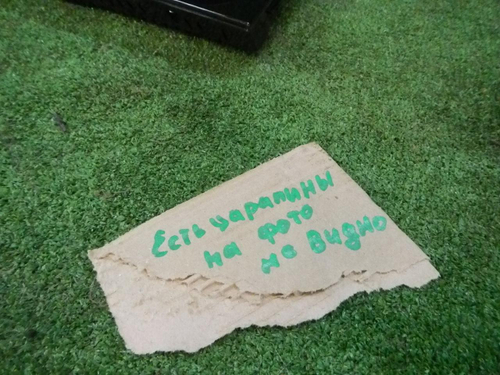 Есть царапины
на фото
не видно